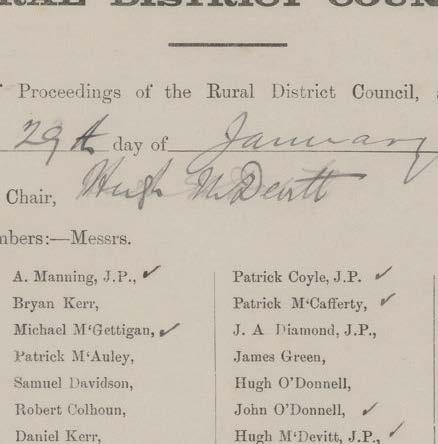 RAL DISTRICT COUN
Proceedings of the Rural District Council, a
29th day of January
Chair, Hugh McDevitt
mbers:—Messrs.
A. Manning, J.P., ✓
Bryan Kerr,
Michael M‘Gettigan, ✓
Patrick M‘Auley,
Samuel Davidson,
Robert Colhoun,
Daniel Kerr,
Patrick Coyle, J.P. ✓
Patrick M‘Cafferty, ✓
J. A Diamond, J.P.,
James Green,
Hugh O’Donnell,
John O’Donnell, ✓
Hugh M‘Devitt, J.P., ✓